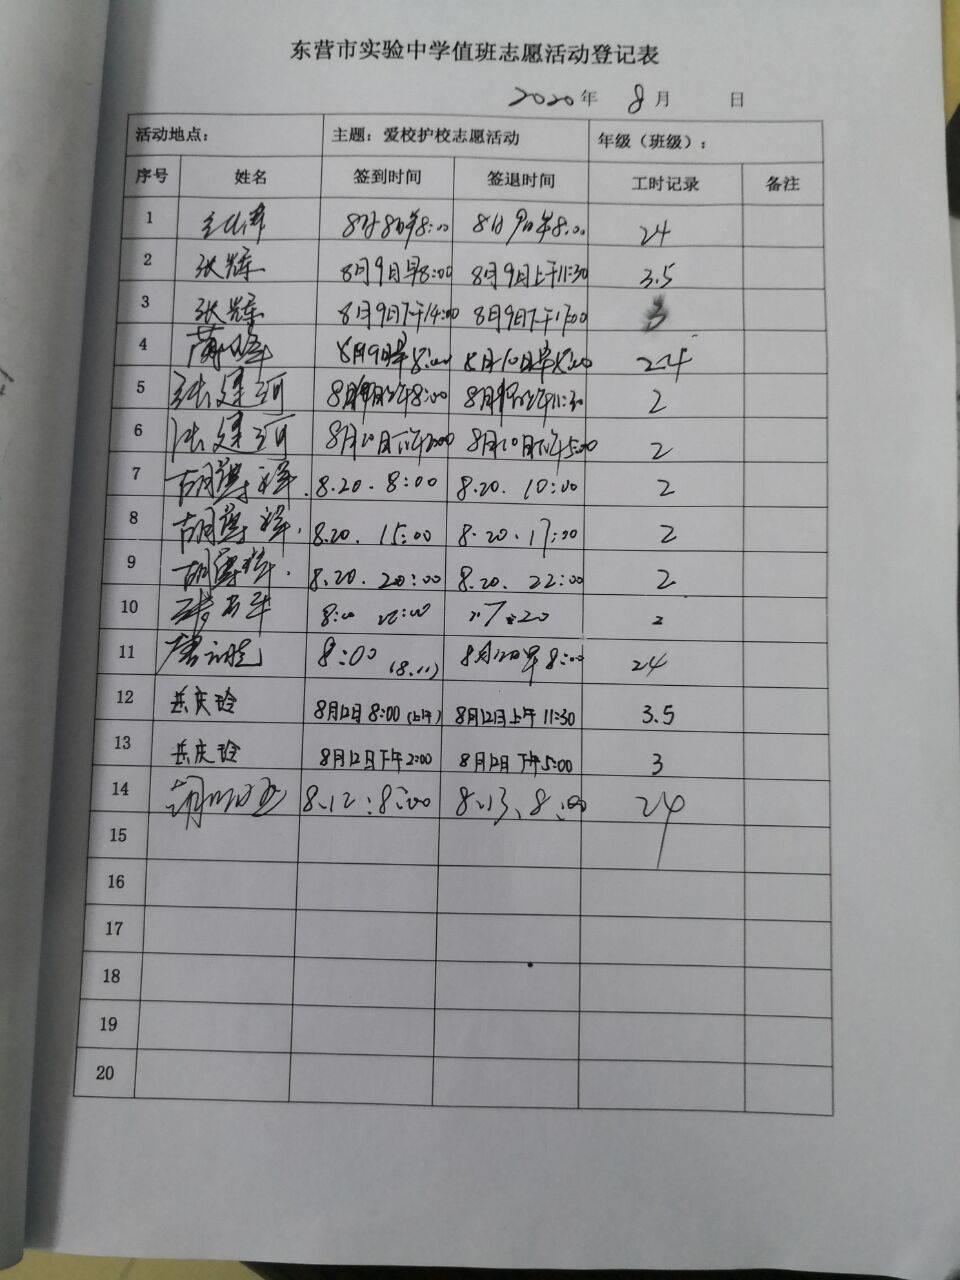 东营市实验中学值班志愿活动登记表
2020年 8月 日
活动地点： 主题：爱校护校志愿活动 年级（班级）：
序号 姓名 签到时间 签退时间 工时记录 备注
1 8月8日早8:00 8月9日早8:00 24
2 张辉 8月9日早8:00 8月9日上午11:30 3.5
3 张辉 8月9日下午14:00 8月9日下午17:00 3
4 8月9日早8:00 8月10日早8:00 24
5 张建河 2
6 张建河 8月10日下午 8月10日下午5:00 2
7 8.20. 8:00 8.20. 10:00 2
8 8.20. 15:00 8.20. 17:00 2
9 8.20. 20:00 8.20. 22:00 2
10 2
11 8:00 (8.11) 8月12日早8:00 24
12 岳庆玲 8月12日 8:00 (上午) 8月12日上午 11:30 3.5
13 岳庆玲 8月12日下午2:00 8月12日下午5:00 3
14 8.12:8:00 8.13、8:00 24
15
16
17
18
19
20